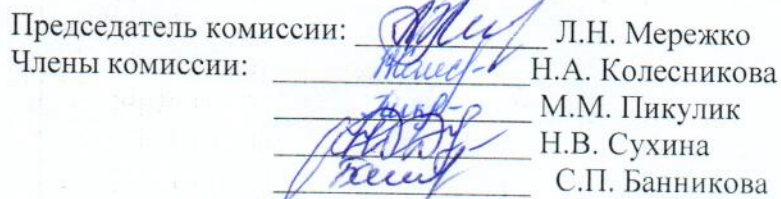 Председатель комиссии: Л.Н. Мережко
Члены комиссии: Н.А. Колесникова
М.М. Пикулик
Н.В. Сухина
С.П. Банникова